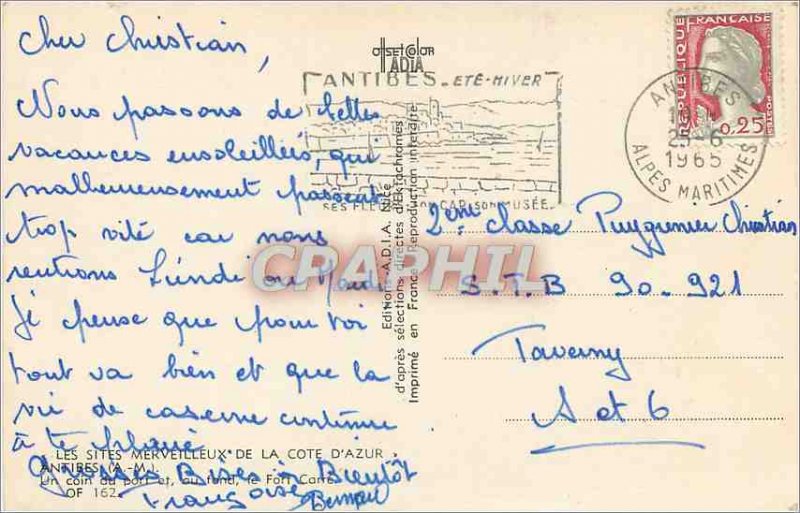 Cher Christian,
Nous passons de belles
vacances ensoleillées, qui
malheureusement passent
trop vite car nous
rentrons Lundi ou Mardi
Je pense que pour toi
tout va bien et que la
vie de caserne continue
à te plaire
Grosses Bises à Bientôt
Françoise
LES SITES MERVEILLEUX DE LA COTE D'AZUR
ANTIBES (A.-M.).
Un coin du port et, au fond, le Fort Carré
OF 162
OFFSET COLOR
ADIA
ANTIBES - ETÉ-HIVER
SES SON CAP SON MUSÉE
Editions A.D.I.A. Nice
d'après sélections directes d'Ektachromes
Imprimé en France Reproduction interdite
CRAPHIL
REPUBLIQUE FRANCAISE
POSTES
0,25
ANTIBES
25-6
1965
ALPES MARITIMES
2ème classe Christian
S.T.B 90-921
Taverny
S et 6